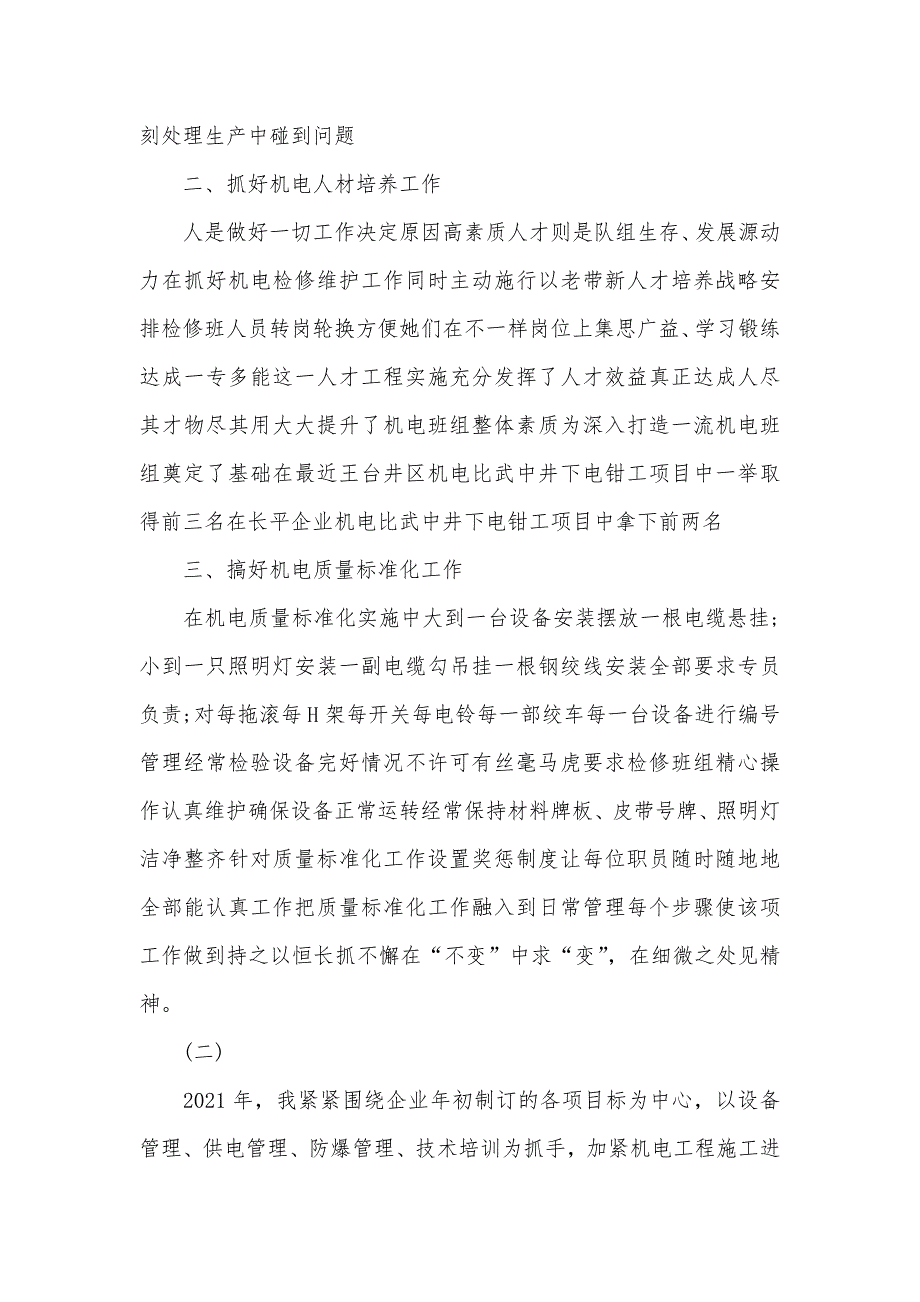 刻处理生产中碰到问题
二、抓好机电人材培养工作
人是做好一切工作决定原因高素质人才则是队组生存、发展源动
力在抓好机电检修维护工作同时主动施行以老带新人才培养战略安
排检修班人员转岗轮换方便她们在不一样岗位上集思广益、学习锻练
达成一专多能这一人才工程实施充分发挥了人才效益真正达成人尽
其才物尽其用大大提升了机电班组整体素质为深入打造一流机电班
组奠定了基础在最近王台井区机电比武中井下电钳工项目中一举取
得前三名在长平企业机电比武中井下电钳工项目中拿下前两名
三、搞好机电质量标准化工作
在机电质量标准化实施中大到一台设备安装摆放一根电缆悬挂;
小到一只照明灯安装一副电缆勾吊挂一根钢绞线安装全部要求专员
负责;对每拖滚每 H 架每开关每电铃每一部绞车每一台设备进行编号
管理经常检验设备完好情况不许可有丝毫马虎要求检修班组精心操
作认真维护确保设备正常运转经常保持材料牌板、皮带号牌、照明灯
洁净整齐针对质量标准化工作设置奖惩制度让每位职员随时随地地
全部能认真工作把质量标准化工作融入到日常管理每个步骤使该项
工作做到持之以恒长抓不懈在“不变”中求“变”，在细微之处见精
神。
(二)
2021 年，我紧紧围绕企业年初制订的各项目标为中心，以设备
管理、供电管理、防爆管理、技术培训为抓手，加紧机电工程施工进